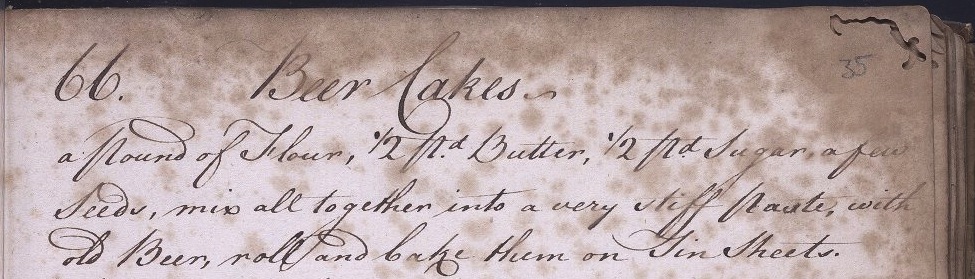 35
66. Beer Cakes
a Pound of Flour, 1/2 Pd. Butter, 1/2 Pd Sugar, a few
Seeds, mix all together into a very stiff Paste, with
old Beer, roll and bake them on Tin Sheets.